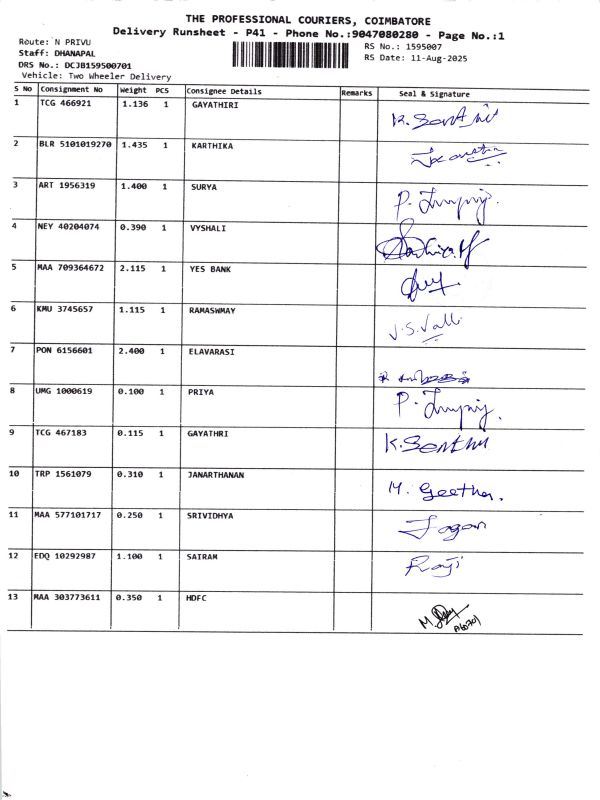 THE PROFESSIONAL COURIERS, COIMBATORE
Delivery Runsheet - P41 - Phone No.:9047080280 - Page No.:1
Route: N PRIVU
RS No.: 1595007
Staff: DHANAPAL
RS Date: 11-Aug-2025
DRS No.: DCJB159500701
Vehicle: Two Wheeler Delivery
S No Consignment No Weight PCS Consignee Details Remarks Seal & Signature
1 TCG 466921 1.136 1 GAYATHIRI K. Senthil
2 BLR 5101019270 1.435 1 KARTHIKA
3 ART 1956319 1.400 1 SURYA
4 NEY 40204074 0.390 1 VYSHALI
5 MAA 709364672 2.115 1 YES BANK
6 KMU 3745657 1.115 1 RAMASWMAY V.S.Valli
7 PON 6156601 2.400 1 ELAVARASI
8 UMG 1000619 0.100 1 PRIYA
9 TCG 467183 0.115 1 GAYATHRI K.Senthil
10 TRP 1561079 0.310 1 JANARTHANAN M. Geetha.
11 MAA 577101717 0.250 1 SRIVIDHYA Jagan
12 EDQ 10292987 1.100 1 SAIRAM Raji
13 MAA 303773611 0.350 1 HDFC